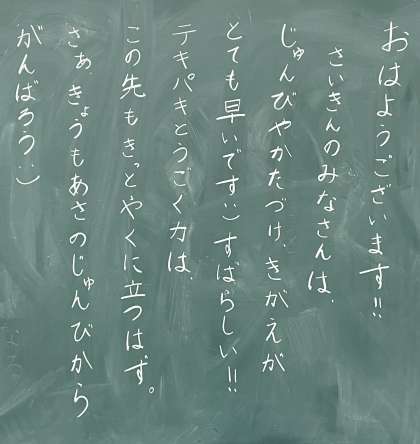 おはようございます!!
さいきんのみなさんは、
じゅんびやかたづけ、きがえが
とても早いです:) すばらしい!!
テキパキとうごく力は、
この先もきっとやくに立つはず。
さぁ、きょうもあさのじゅんびから
がんばろう:)